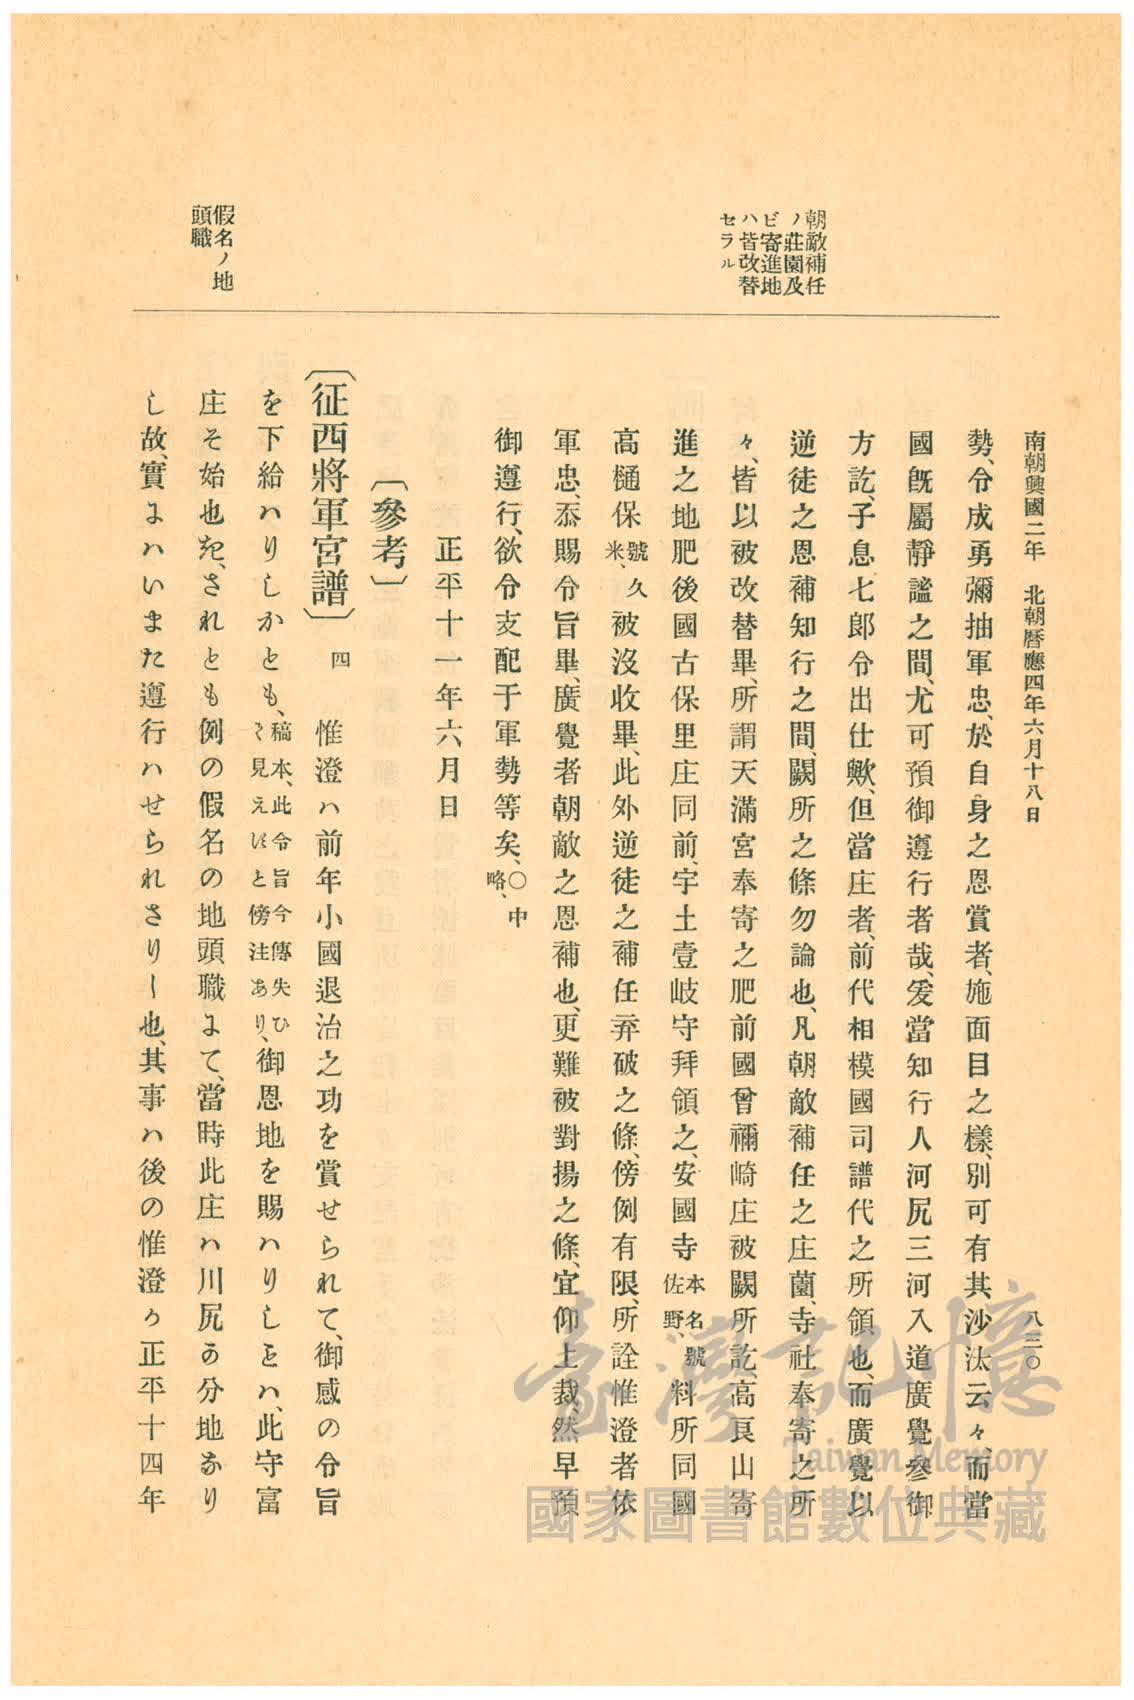 南朝興國二年　北朝曆應四年六月十八日　八三〇
朝敵補任
ノ莊園及
ビ寄進地
ハ皆改替
セラル
假名ノ地
頭職
勢、令成勇彌抽軍忠、於自身之恩賞者、施面目之樣、別可有其沙汰云々、而當
國旣屬靜謐之間、尤可預御遵行者哉、爰當知行人河尻三河入道廣覺參御
方訖、子息七郎令出仕歟、但當庄者、前代相模國司譜代之所領也、而廣覺以
逆徒之恩補知行之間、闕所之條勿論也、凡朝敵補任之庄薗、寺社奉寄之所
々、皆以被改替畢、所謂天滿宮奉寄之肥前國曾禰崎庄被闕所訖、高良山寄
進之地肥後國古保里庄同前、宇土壹岐守拜領之、安國寺本名號佐野、料所同國
高樋保號久米、被沒收畢、此外逆徒之補任弃破之條、傍例有限、所詮惟澄者依
軍忠、忝賜令旨畢、廣覺者朝敵之恩補也、更難被對揚之條、宜仰上裁、然早預
御遵行、欲令支配于軍勢等矣、〇中略、
正平十一年六月日
〔參考〕
〔征西將軍宮譜〕四　惟澄ハ前年小國退治之功を賞せられて、御感の令旨
を下給ハりしかとも、稿本、此令旨今傳失ひて見えすと傍注あり、御恩地を賜ハりしをハ、此守富
庄そ始也き、されとも例の假名の地頭職にて、當時此庄ハ川尻の分地なり
し故、實にハいまた遵行ハせられさりし也、其事ハ後の惟澄か正平十四年
臺灣記憶
Taiwan Memory
國家圖書館數位典藏